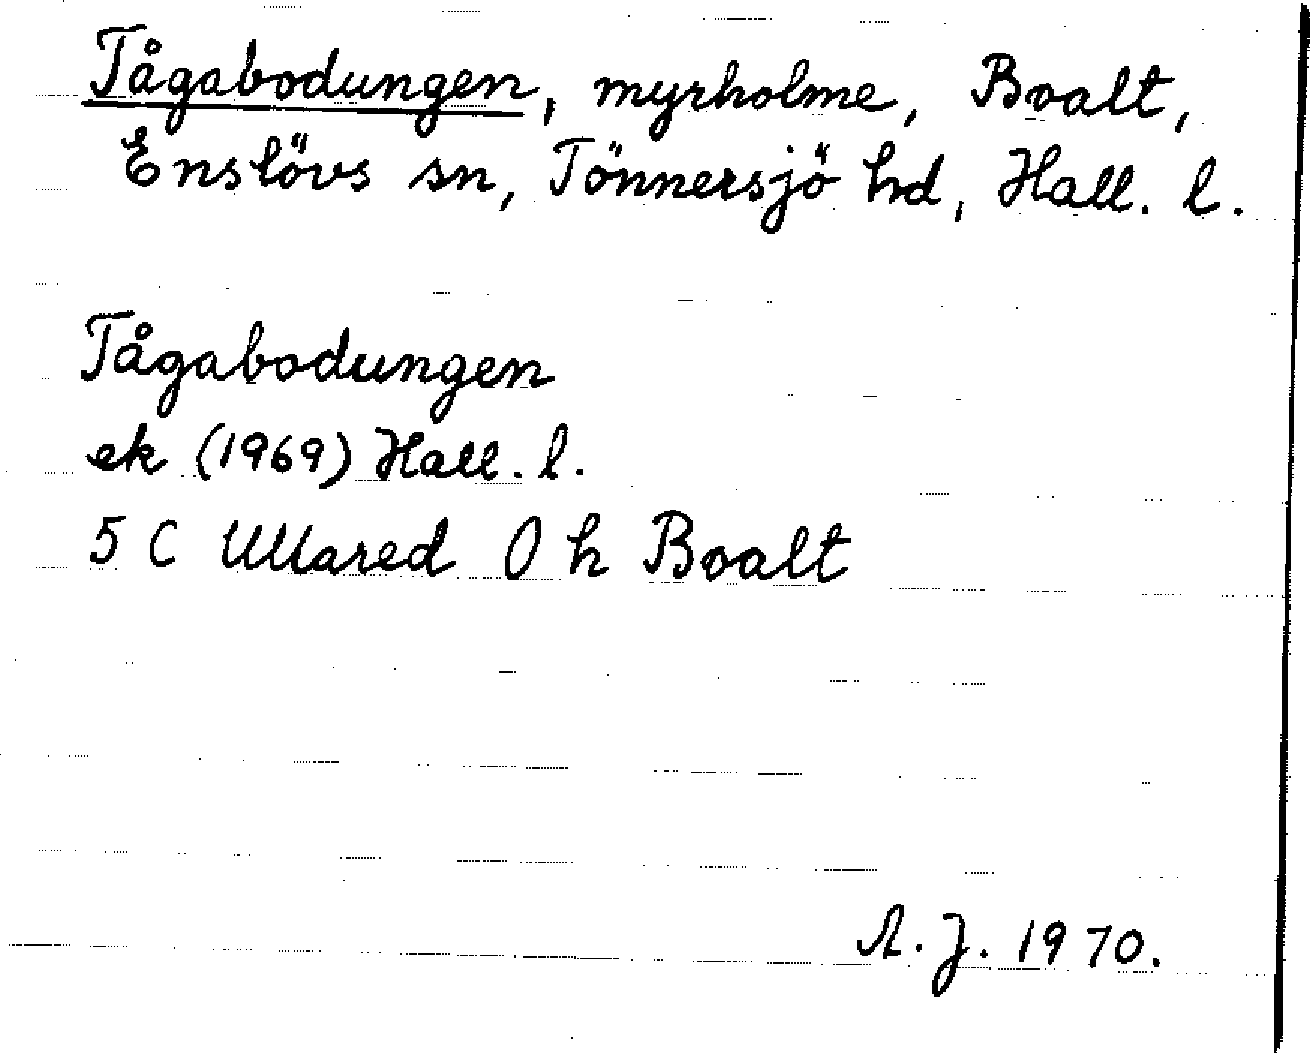 Tågabodungen, myrholme, Boalt,
Enslövs sn, Tönnersjö hd, Hall. l.
Tågabodungen
ek (1969) Hall. l.
5 C Ullared O h Boalt
A. J. 1970.